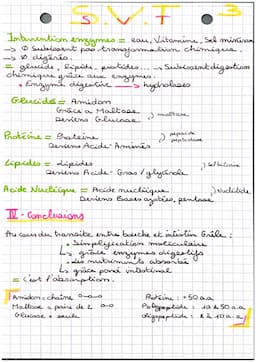 S.V.T
3
Intervention enzymes = eau, Vitamine, Sel minéraux
→ Ø Subissent pas transformation chimique.
→ Ø digérés.
= glucide, lipide, protides... → Subissent digestion
chimique grâce aux enzymes.
• Enzyme digestive → hydrolases
Glucides = Amidon
Grâce a Maltase
Deviens Glucose
maltase
Protéine = Protéine
Deviens Acide-Aminés
peptidase
Lipides = Lipides
Deviens Acide-Gras/glycérole
Acide Nucléique = Acide nucléique
Deviens Bases azotées, pentose
nucléotide
IV - Conclusions
Au cours du transite entre bouche et intestin Grêle :
• Simplification moléculaire
↳ grâce enzymes digestifs
• Les nutriments absorbés
↳ grâce paroi intestinal
= C'est l'absorption.
Amidon = chaîne o-o-o
Maltose = paire de 2 o-o
Glucose = seule
Protéine : +50 a.a
Polypeptide : 10 à 50 a.a
Oligopeptide : 2 à 10 a.a